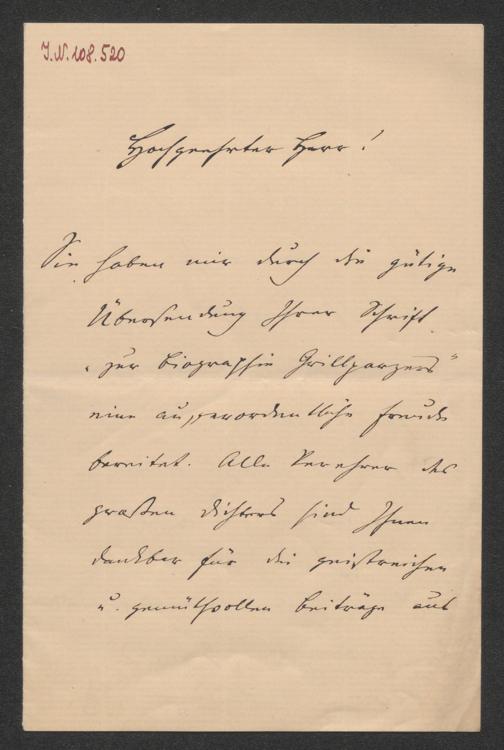 J.N. 108.520
Hochgeehrter Herr!
Sie haben mir durch die gütige
Übersendung Ihrer Schrift
„zur Biographie Grillparzers“
eine außerordentliche Freude
bereitet. Alle Verehrer des
großen Dichters sind Ihnen
dankbar für die geistreichen
u. gemüthvollen Beiträge aus